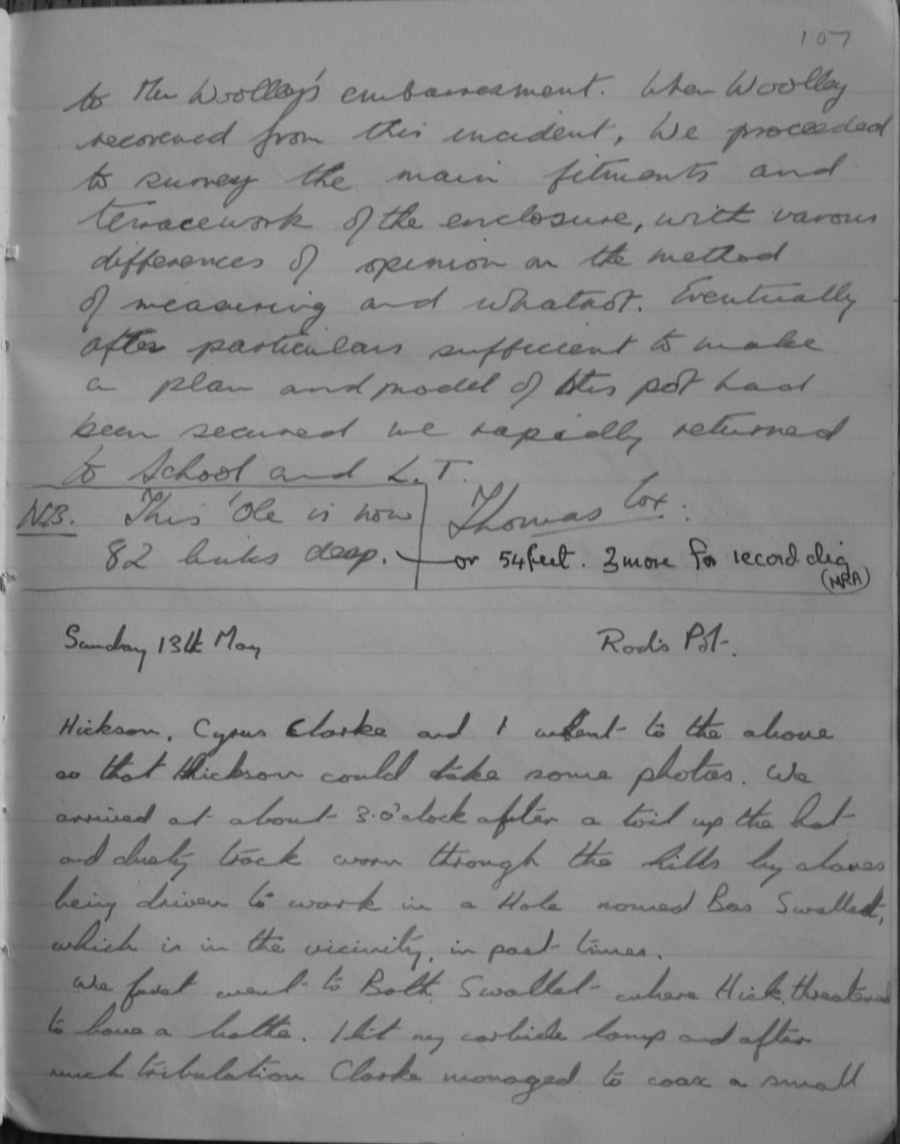 107
to Mr Woolley's embarrassment. When Woolley
recovered from this incident, we proceeded
to survey the main fitments and
terracework of the enclosure, with varous
differences of opinion on the method
of measuring and whatnot. Eventually
after particulars sufficient to make
a plan and model of this pot had
been secured we rapidly returned
to School and L.T.
N.B. This 'Ole is now
82 links deep.
Thomas Cox.
or 54 feet. 3 more for record dig
(NRA)
Sunday 13th May Rod's Pot.
Hickson, Cyrus Clarke and I went to the above
so that Hickson could take some photos. We
arrived at about 3.o'clock after a toil up the hot
and dusty track worn through the hills by slaves
being driven to work in a Hole named Bos Swallet,
which is in the vicinity, in past times.
We first went to Bath Swallet where Hick. threatened
to have a bathe. I lit my carbide lamp and after
much tribulation Clarke managed to coax a small